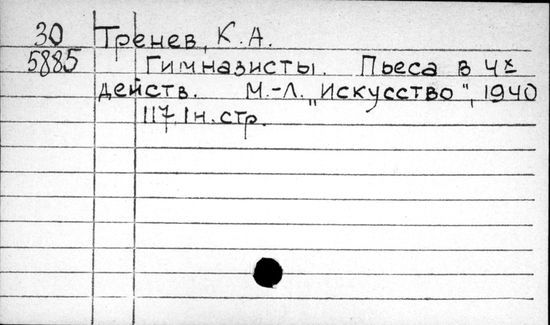 30 Тренев, К.А.
5885 Гимназисты. Пьеса в 4х
действ. М.-Л. "Искусство", 1940
117,1н.стр.